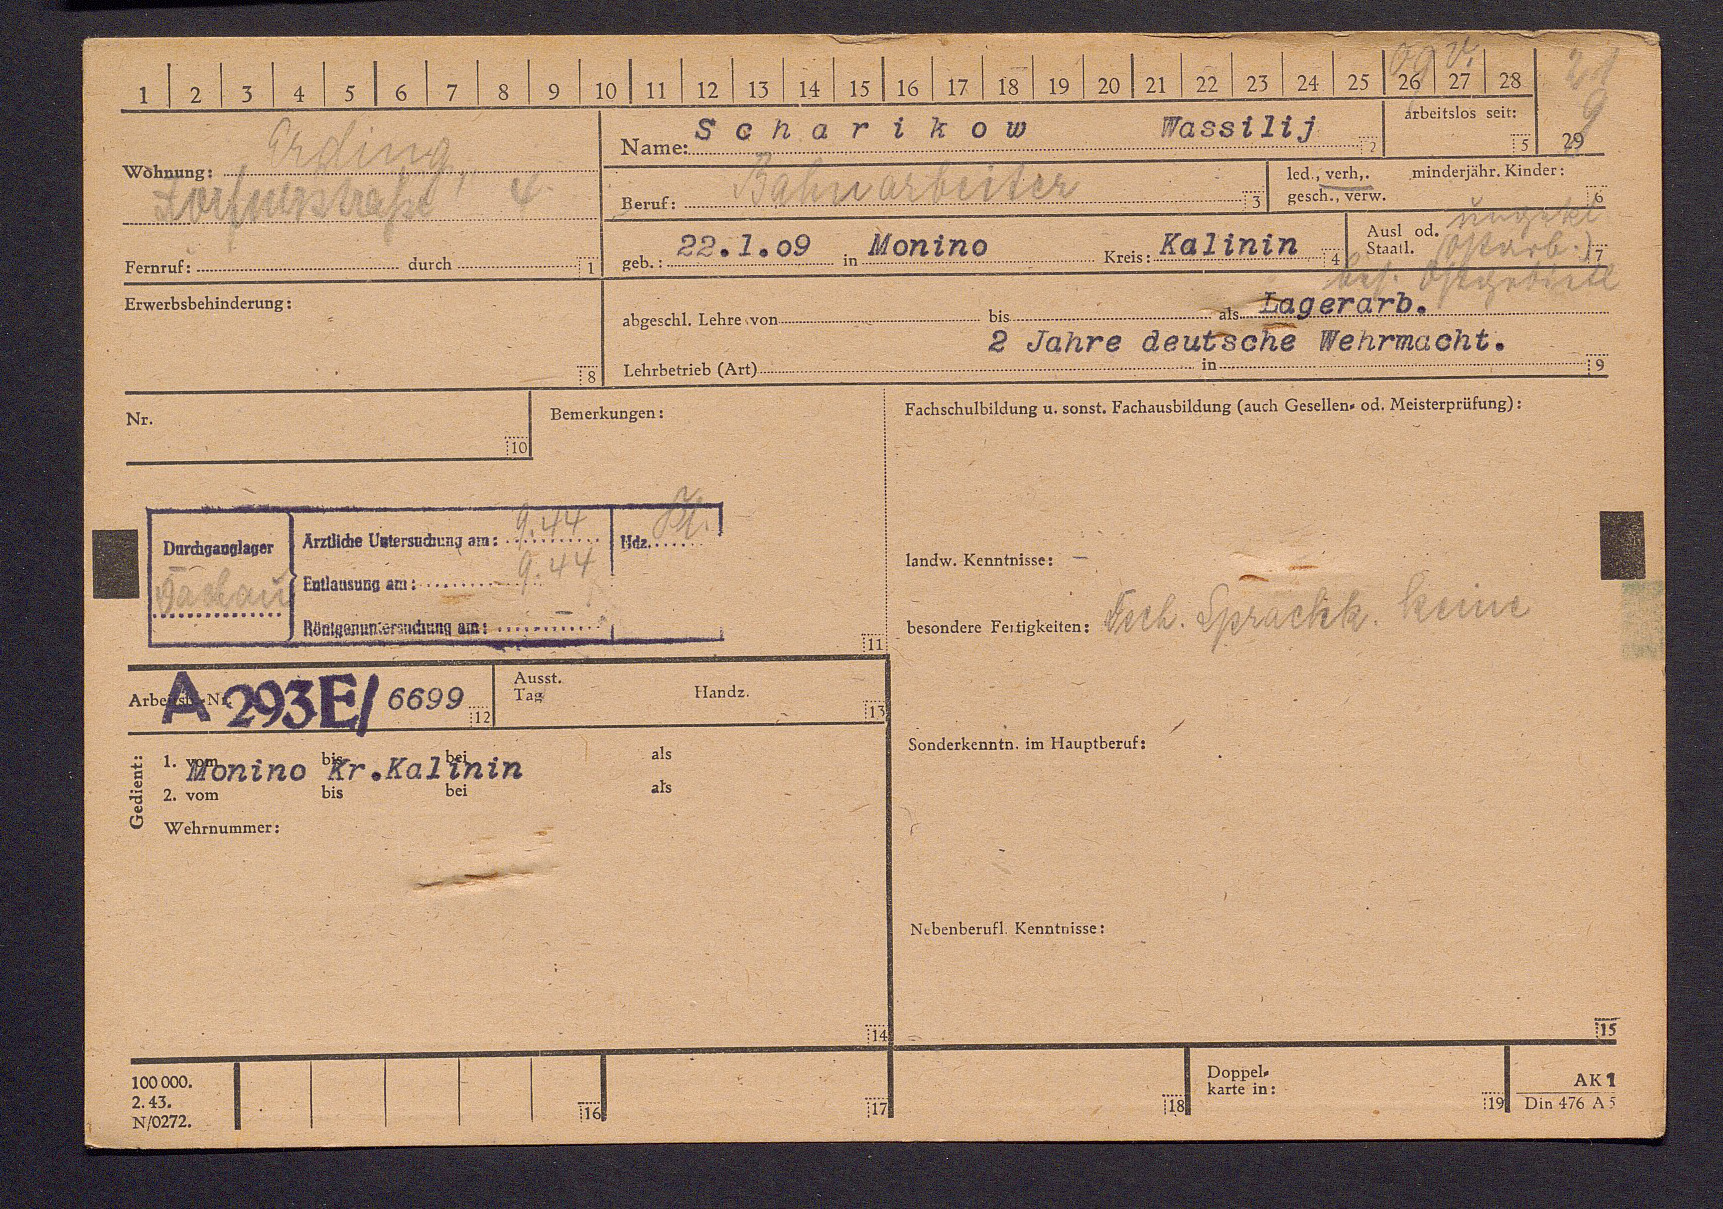 1 2 3 4 5 6 7 8 9 10 11 12 13 14 15 16 17 18 19 20 21 22 23 24 25 26 27 28
21
9
29
Wohnung: Erding,
4.
Fernruf: durch 1
Name: Scharikow Wassilij 2
arbeitslos seit: 5
Beruf: Bahnarbeiter 3
led., verh,. minderjähr. Kinder:
gesch., verw. 6
geb.: 22.1.09 in Monino Kreis: Kalinin 4
Ausl od.
Staatl. 7
ungekl
(Ostarb.)
bes. Ostgebiete
Erwerbsbehinderung:
8
abgeschl. Lehre von bis als Lagerarb.
2 Jahre deutsche Wehrmacht.
Lehrbetrieb (Art) in 9
Nr.
10
Bemerkungen:
Durchganglager
Dachau
Ärztliche Untersuchung am: 9.44
Hdz.
Entlausung am: 9.44
Röntgenuntersuchung am: –
11
Fachschulbildung u. sonst. Fachausbildung (auch Gesellen- od. Meisterprüfung):
landw. Kenntnisse: –
besondere Fertigkeiten: Sprachk. keine
Sonderkenntn. im Hauptberuf:
Nebenberufl. Kenntnisse:
15
Arbeitsb.-Nr. A 293E/ 6699 12
Ausst.
Tag Handz. 13
Gedient:
1. vom bis bei als
Monino Kr.Kalinin
2. vom bis bei als
Wehrnummer:
14
100 000.
2. 43.
N/0272.
16
17
18
Doppel-
karte in: 19
AK 1
Din 476 A 5